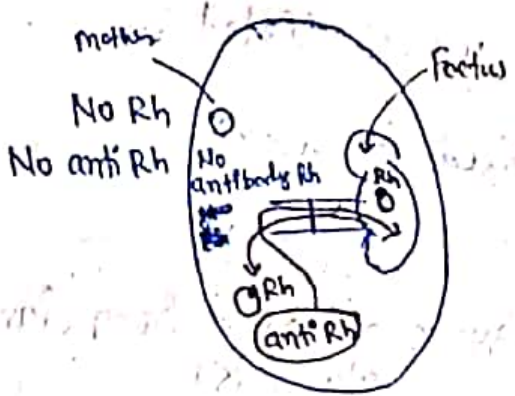 mother
Foetus
No Rh
No anti Rh
No
antibody Rh
Rh
Rh
anti Rh